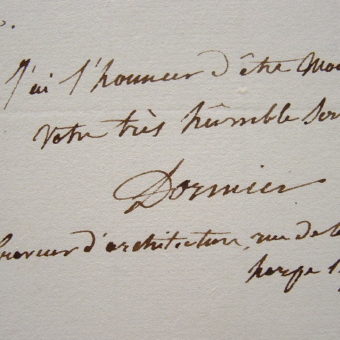 J'ai l'honneur d'être Mo
votre très humble Ser
Dormier
Graveur d'architecture, rue de la
harpe